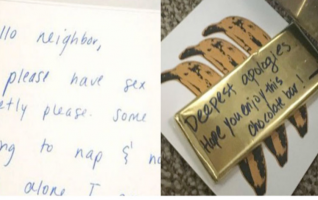 llo neighbor,
please have sex
etly please. Some
ng to nap & no
alone I
Deepest apologies
Hope you enjoy this
chocolate bar!